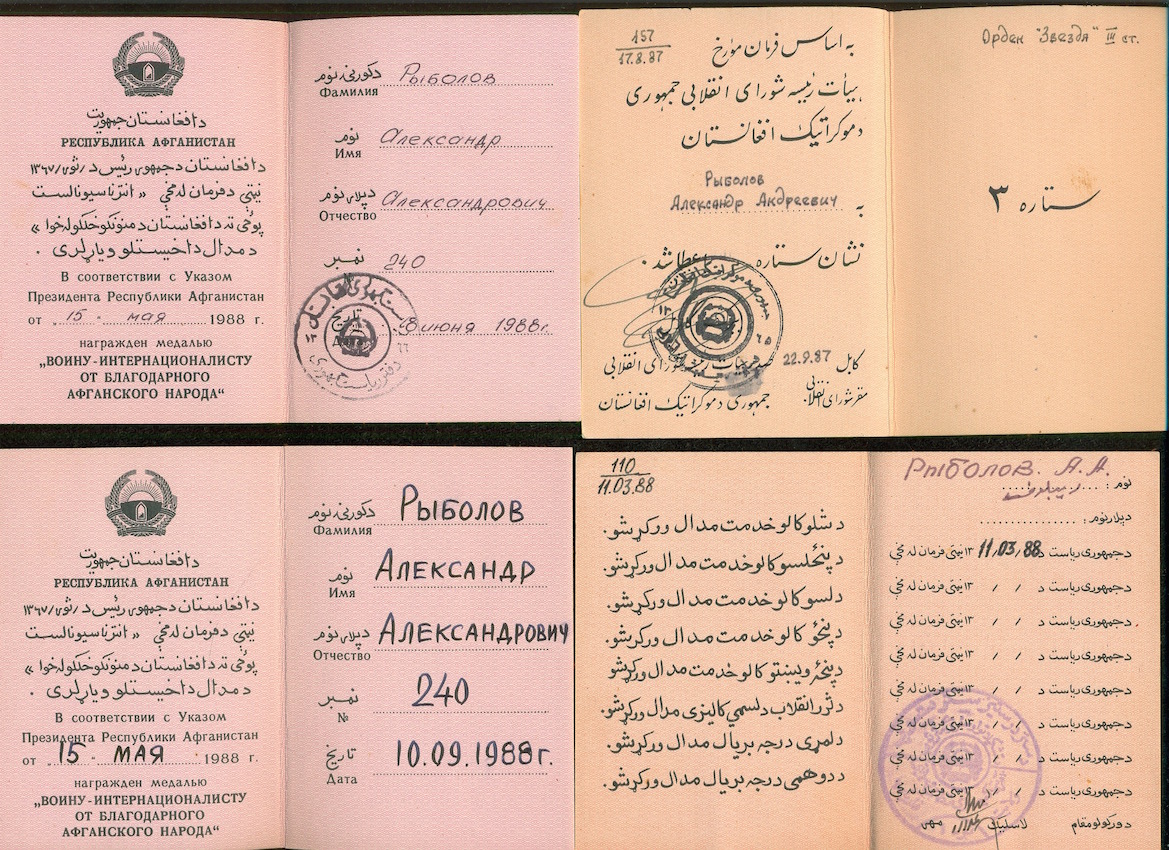 دافغانستان جمهوریت
РЕСПУБЛИКА АФГАНИСТАН
دافغانستان دجمهوری رئیس د ثور/۱۳۶۷
نیټې دفرمان له مخې « انترناسیونالست
پوځي ته دافغانستان دمنونکو خلکو له خوا »
دمدال داخیستلو ویاړ لری .
В соответствии с Указом
Президента Республики Афганистан
от 15 - мая 1988 г.
награжден медалью
„ВОИНУ-ИНТЕРНАЦИОНАЛИСТУ
ОТ БЛАГОДАРНОГО
АФГАНСКОГО НАРОДА“
دکورنۍ نوم Рыболов
Фамилия
نوم Александр
Имя
دپلار نوم Александрович
Отчество
نمبر 240
تاریخ 8 июня 1988г.
157
17.8.87
به اساس فرمان مورخ
هیأت رئیسه شورای انقلابی جمهوری
دموکراتیک افغانستان
Рыболов
Александр Андреевич به
نشان ستاره عطا شد .
22.9.87 کابل
صدر هیأت رئیسه شورای انقلابی
مقر شورای انقلابی
جمهوری دموکراتیک افغانستان
Орден "Звезда" III ст.
ستاره ۳
دافغانستان جمهوریت
РЕСПУБЛИКА АФГАНИСТАН
دافغانستان دجمهوری رئیس د ثور/۱۳۶۷
نیټې دفرمان له مخې « انترناسیونالست
پوځي ته دافغانستان دمنونکو خلکو له خوا »
دمدال داخیستلو ویاړ لری .
В соответствии с Указом
Президента Республики Афганистан
от 15 - МАЯ 1988 г.
награжден медалью
„ВОИНУ-ИНТЕРНАЦИОНАЛИСТУ
ОТ БЛАГОДАРНОГО
АФГАНСКОГО НАРОДА“
دکورنۍ نوم РЫБОЛОВ
Фамилия
نوم АЛЕКСАНДР
Имя
دپلار نوم АЛЕКСАНДРОВИЧ
Отчество
نمبر 240
№
تاریخ 10.09.1988г.
Дата
110
11.03.88
دشلو کالو خدمت مدال ورکړشو.
دپنځلسو کالو خدمت مدال ورکړشو.
دلسو کالو خدمت مدال ورکړشو.
دپنځو کالو خدمت مدال ورکړشو.
دپنځه ویشتو کالو خدمت مدال ورکړشو
دثور انقلاب دلسمې کالیزې مدال ورکړشو.
دلمړی درجه بریال مدال ورکړشو.
ددوهمې درجه بریال مدال ورکړشو.
РЫБОЛОВ. А.А.
نوم :
دپلار نوم :
دجمهوری ریاست د 11,03,88 ۱۳ نیټې فرمان له مخې
دجمهوری ریاست د / / ۱۳ نیټې فرمان له مخې
دجمهوری ریاست د / / ۱۳ نیټې فرمان له مخې
دجمهوری ریاست د / / ۱۳ نیټې فرمان له مخې
دجمهوری ریاست د / / ۱۳ نیټې فرمان له مخې
دجمهوری ریاست د / / ۱۳ نیټې فرمان له مخې
دجمهوری ریاست د / / ۱۳ نیټې فرمان له مخې
دجمهوری ریاست د / / ۱۳ نیټې فرمان له مخې
دورکولو مقام لاسلیک مهر